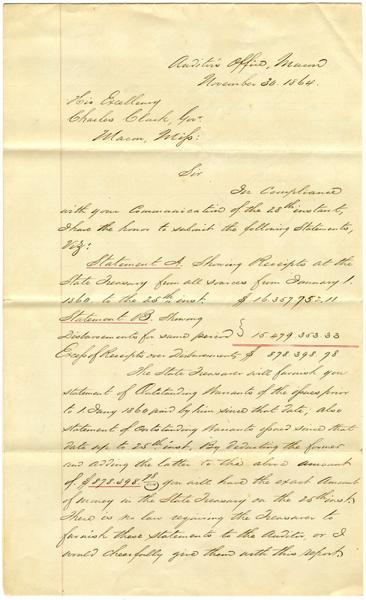 Auditor's Office, Macon
November 30. 1864.
His Excellency
Charles Clark, Gov.
Macon, Miss:
Sir
In Compliance
with your Communication of the 28th instant,
I have the honor to submit the following Statements,
Viz:
Statement A, Showing Receipts at the
State Treasury from all sources from January 1.
1860 to the 25th inst. $ 16.357,752.11
Statement B, Showing
Disbursements for same period } 15,479,353.33
Excess of Receipts over Disbursements $ 878.398.78
The State Treasurer will furnish you
statement of Outstanding Warrants of the issues prior
to 1 Jany 1860 paid by him since that date, also
statement of Outstanding Warrants issued since that
date up to 25th inst. By deducting the former
and adding the latter to the above amount
of $878.398.78 you will have the exact Amount
of money in the State Treasury on the 25th inst.
There is no law requiring the Treasurer to
furnish these statements to the Auditor, or I
would cheerfully give them with this report.